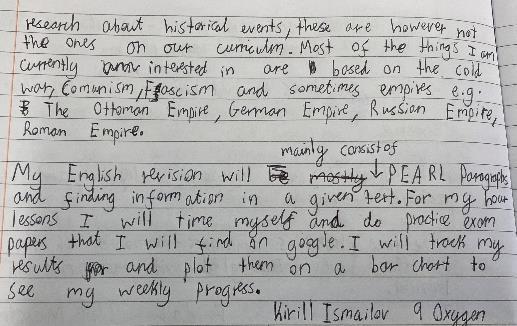 research about historical events, these are however not
the ones on our curriculum. Most of the things I am
currently interested in are based on the cold
war, Comunism, Fascism and sometimes empires e.g.
The Ottoman Empire, German Empire, Russian Empire,
Roman Empire.
mainly consist of
My English revision will be mostly ↓ PEARL Paragraphs
and finding information in a given text. For my hour
lessons I will time myself and do practice exam
papers that I will find on google. I will track my
results and plot them on a bar chart to
see my weekly progress.
Kirill Ismailov 9 Oxygen